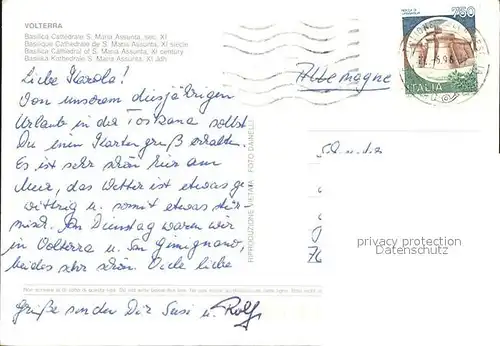 VOLTERRA
Basilica Cattedrale S. Maria Assunta, sec. XI
Basilique Cathédrale de S. Maria Assunta, XI siècle
Basilica Cathedral of S. Maria Assunta, XI century
Basilika Kathedrale S. Maria Assunta, XI Jdh.
750
ITALIA
Allemagne
Liebe Karola!
Von unserem diesjährigen
Urlaube in der Toskana sollst
Du einen Kartengruß erhalten.
Es ist sehr schön hier am
Meer, das Wetter ist etwas ge
wittrig u. somit etwas stür-
misch. Am Dienstag waren wir
in Volterra u. San Gimignano,
beides sehr schön. Viele liebe
Grüße senden Dir Susi u. Rolf
RIPRODUZIONE VIETATA - FOTO DAINELLI
privacy protection
Datenschutz